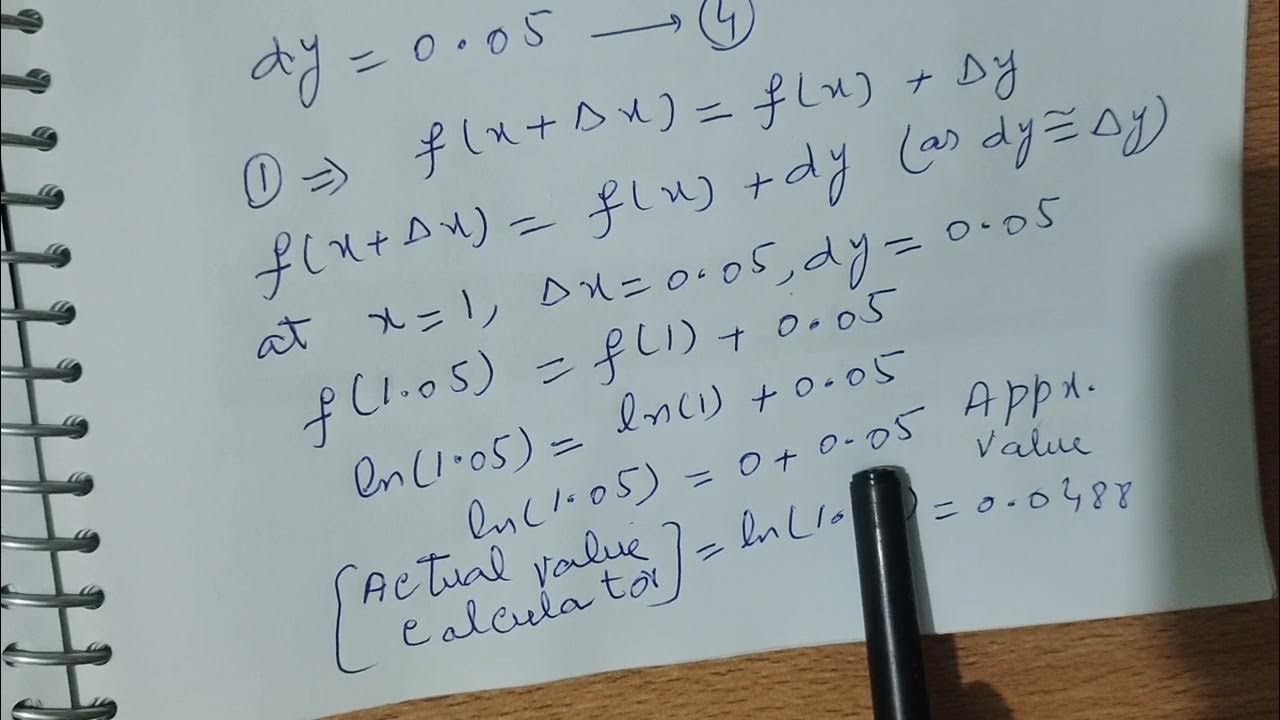 dy = 0.05 → ④
① ⇒ f(x + Δx) = f(x) + Δy
f(x + Δx) = f(x) + dy (as dy ≅ Δy)
at x = 1, Δx = 0.05, dy = 0.05
f(1.05) = f(1) + 0.05
ln(1.05) = ln(1) + 0.05
ln(1.05) = 0 + 0.05 Appx. value
[Actual value calculator] = ln(1.0 ) = 0.0488